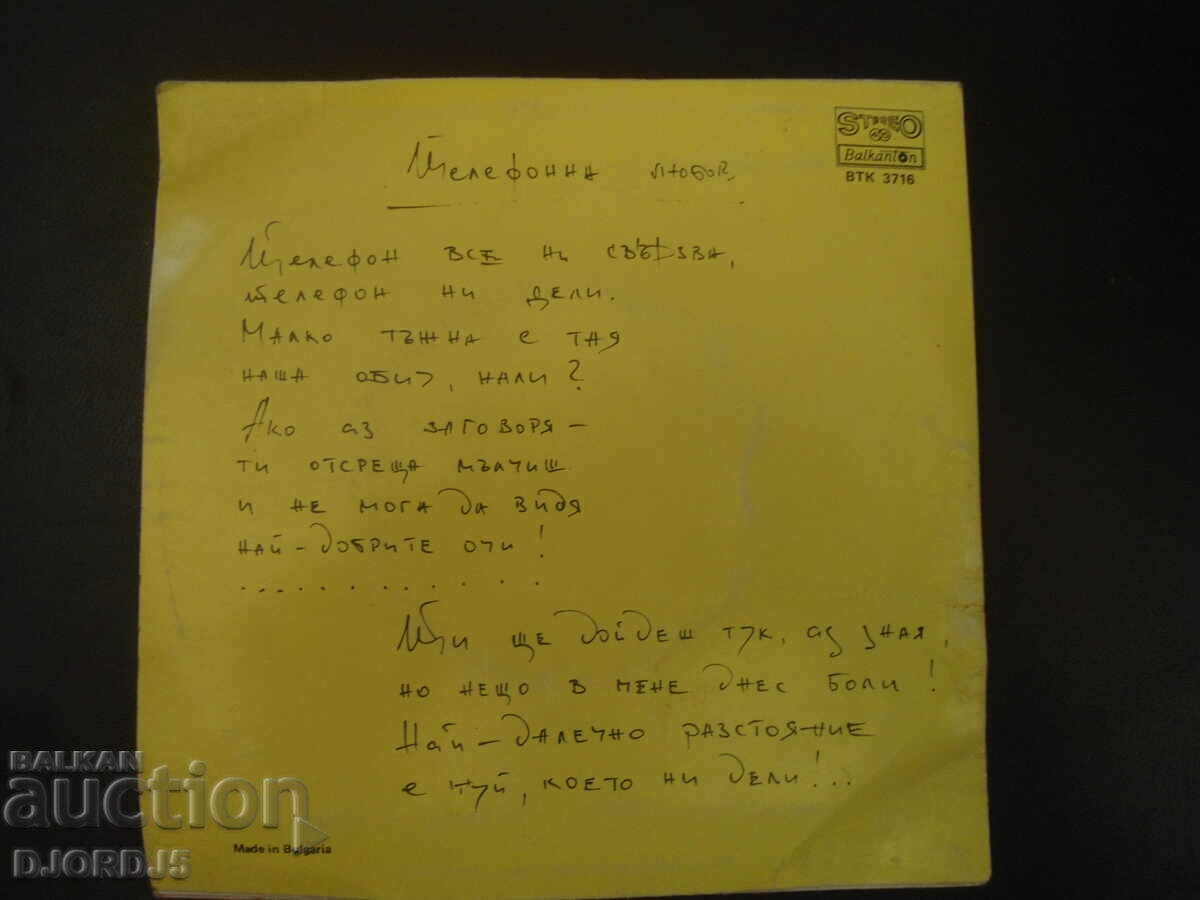 STEREO
Balkanton
ВТК 3716
Телефонна любов
Телефон все ни свързва,
телефон ни дели.
Малко тъжна е тая
наша обич, нали?
Ако аз заговоря –
ти отсреща мълчиш
и не мога да видя
най-добрите очи!
............
Ти ще дойдеш тук, аз зная,
но нещо в мене днес боли!
Най-далечно разстояние
е туй, което ни дели!..
Made in Bulgaria
BALKAN
auction
DJORDJ5